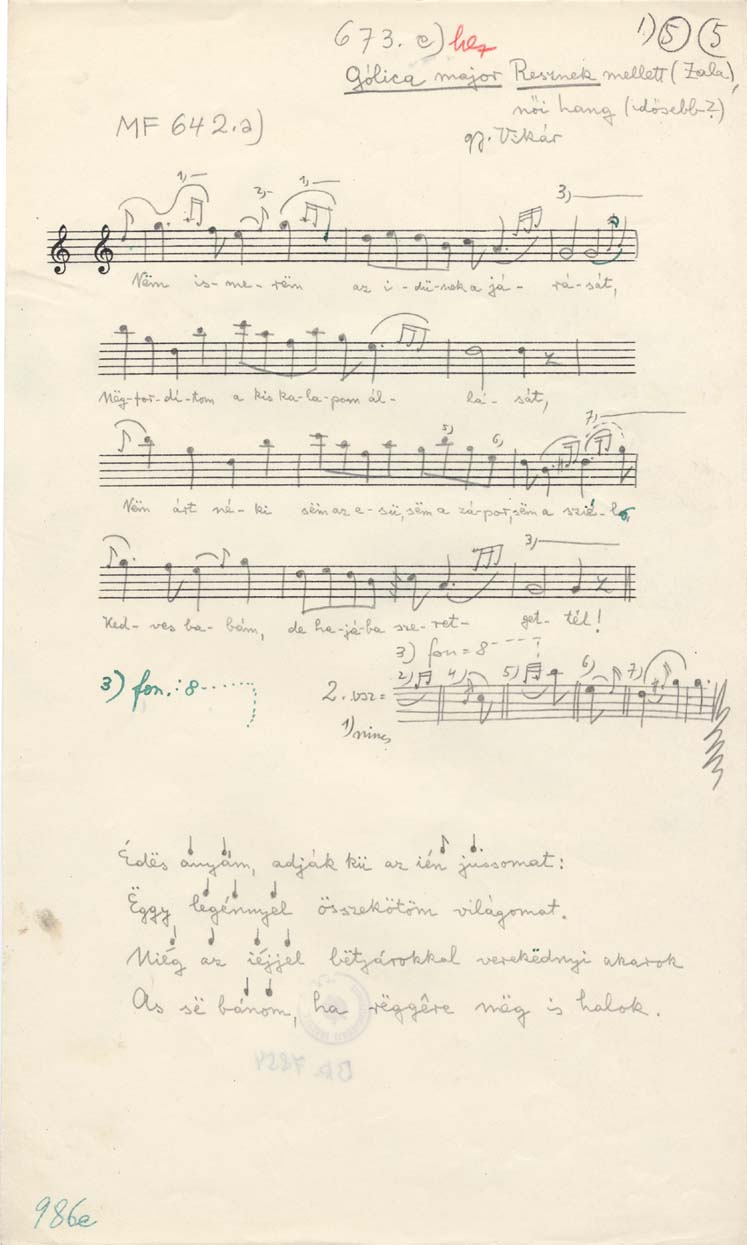 673. e) hez
1) 5 5
Gólica major Resznek mellett (Zala),
női hang (idősebb?)
MF 642.a)
gy. Vikár
1) 2) 1) 3)
Nëm is-me-rëm az i-dü-nek a já-rá-sát,
Mëg-for-di-tom a kis ka-la-pom ál-lá-sát,
5) 6) 7)
Nëm árt né-ki sëm az e-sü, sëm a zá-por, sëm a szié-lő,
3)
Ked-ves ba-bám, de ha-já-ba sze-ret-get-tél!
3) fon = 8
3) fon.: 8
2. vsz =
2) 4) 5) 6) 7)
1) nincs
Édës anyám, adják kü az ién jussomat:
Ëggy legénnyel összekötöm világomat.
Miég az iéjjel bëtjárokkal verekëdnyi akarok
As së bánom, ha rëggêre mëg is halok.
986e